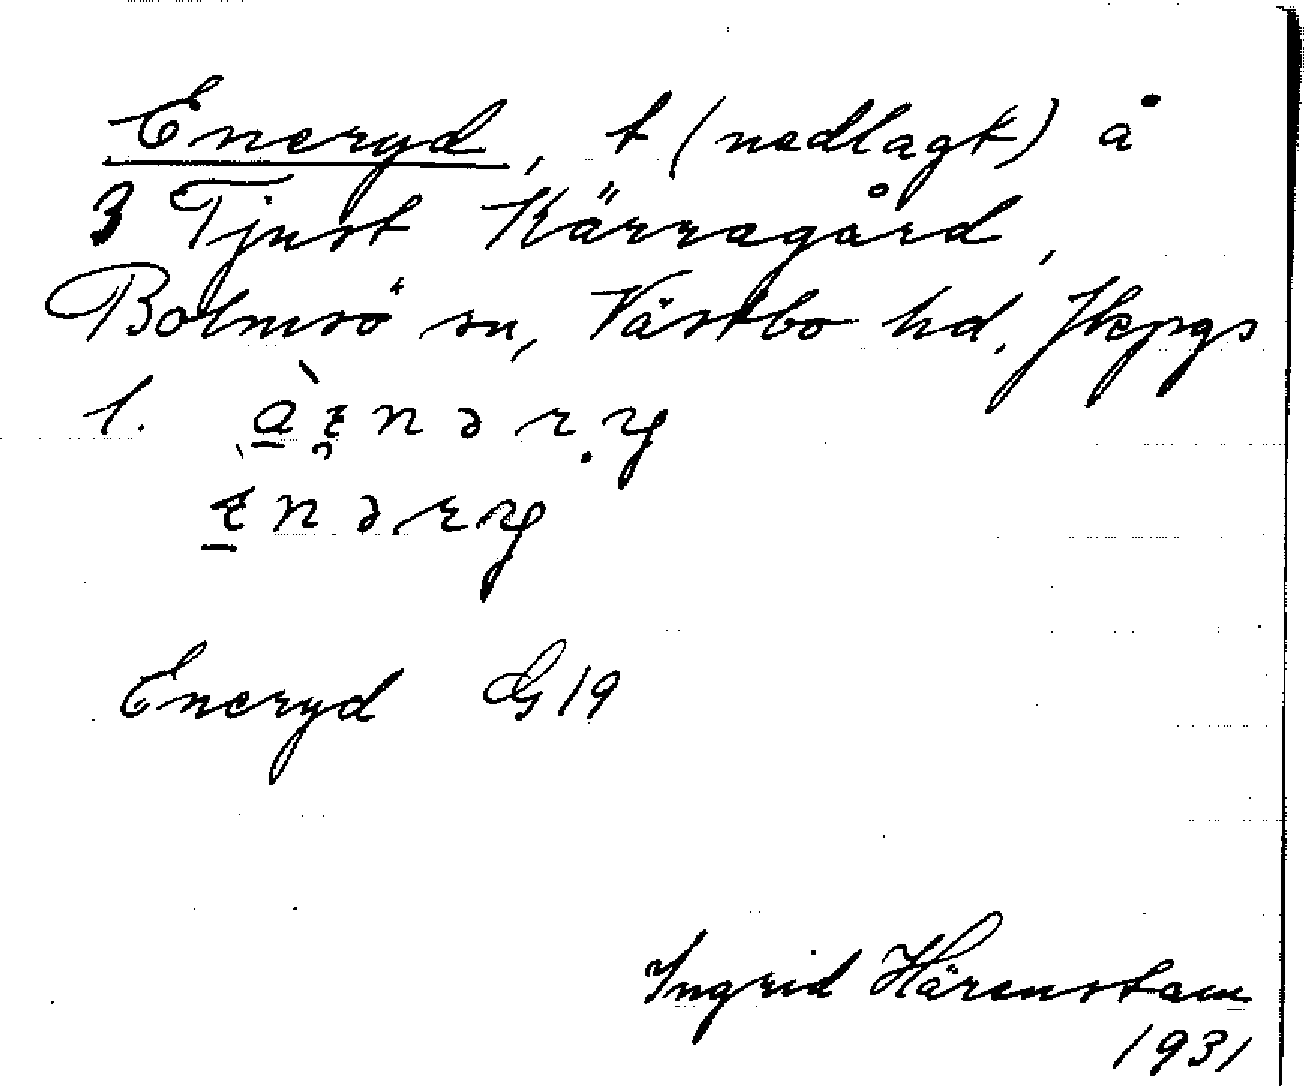 Eneryd, t (nedlagt) å
3 Tjust Kärragård,
Bolmsö sn, Västbo hd, Jkpgs
l.
Eneryd GG 19
Ingrid Härenstam
1931